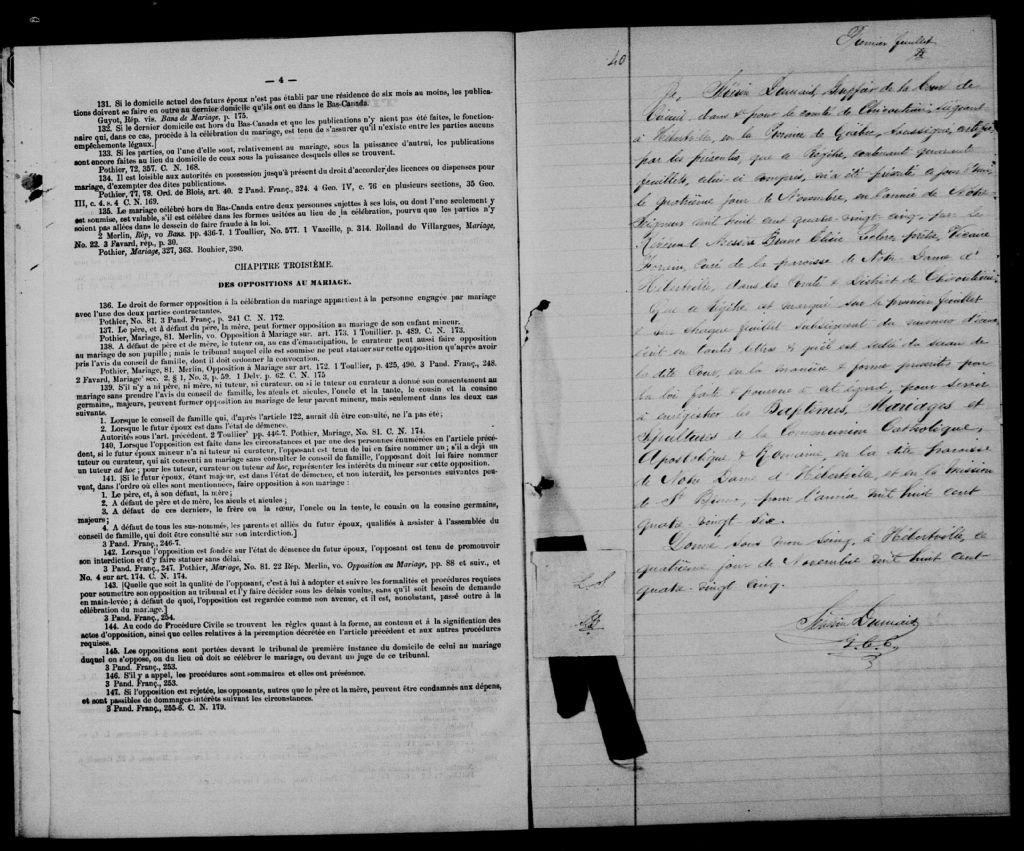 — 4 —
131. Si le domicile actuel des futurs époux n'est pas établi par une résidence de six mois au moins, les publica-
tions doivent se faire en outre au dernier domicile qu'ils ont eu dans le Bas-Canada.
Guyot, Rép. vis. Bans de Mariage, p. 175.
132. Si le dernier domicile est hors du Bas-Canada et que les publications n'y aient pas été faites, le fonction-
naire qui, dans ce cas, procède à la célébration du mariage, est tenu de s'assurer qu'il n'existe entre les parties aucuns
empêchements légaux.]
133. Si les parties, ou l'une d'elle sont, relativement au mariage, sous la puissance d'autrui, les publications
sont encore faites au lieu du domicile de ceux sous la puissance desquels elles se trouvent.
Pothier, 72, 357. C. N. 168.
134. Il est loisible aux autorités en possession jusqu'à présent du droit d'accorder des licences ou dispenses pour
mariage, d'exempter des dites publications.
Pothier, 77, 78. Ord. de Blois, art. 40. 2 Pand. Franç., 324. 4 Geo. IV, c. 76 en plusieurs sections, 35 Geo.
III, c. 4. s. 4 C. N. 169.
135. Le mariage célébré hors du Bas-Canda entre deux personnes sujettes à ses lois, ou dont l'une seulement y
est soumise, est valable, s'il est célébré dans les formes usitées au lieu de la célébration, pourvu que les parties n'y
soient pas allées dans le dessein de faire fraude à la loi.
2 Merlin, Rép, vo Bans. pp. 436-7. 1 Toullier, No. 577. 1 Vazeille, p. 314. Rolland de Villargues, Mariage,
No. 22. 3 Favard, rép., p. 30.
Pothier, Mariage, 327, 363. Bouhier, 390.
CHAPITRE TROISIÈME.
DES OPPOSITIONS AU MARIAGE.
136. Le droit de former opposition à la célébration du mariage appartient à la personne engagée par mariage
avec l'une des deux parties contractantes.
Pothier, No. 81. 3 Pand. Franç., p. 241 C. N. 172.
137. Le père, et à défaut du père, la mère, peut former opposition au mariage de son enfant mineur.
Pothier, Mariage, 81. Merlin, vo. Opposition à Mariage sur. art. 173. 1 Toullier. p. 489. C. N. 173.
138. A défaut de père et de mère, le tuteur ou, au cas d'émancipation, le curateur peut aussi faire opposition
au mariage de son pupille; mais le tribunal auquel elle est soumise ne peut statuer sur cette opposition qu'après avoir
pris l'avis du conseil de famille, dont il doit ordonner la convocation.
Pothier, Mariage, 81. Merlin, Opposition à Mariage sur art. 172. 1 Toullier, p. 425, 490. 3 Pand. Franç., 248.
2 Favard, Mariage' sec. 2. § 1, No. 3, p. 59. 1 Delv. p. 62. C. N. 175
139. S'il n'y a ni père, ni mère, ni tuteur, ni curateur, ou si le tuteur ou curateur a donné son consentement au
mariage sans prendre l'avis du conseil de famille, les aïeuls et aïeules, l'oncle et la tante, le cousin et la cousine
germains, majeurs, peuvent former opposition au mariage de leur parent mineur, mais seulement dans les deux cas
suivants.
1. Lorsque le conseil de famille qui, d'après l'article 122, aurait dû être consulté, ne l'a pas été;
2. Lorsque le futur époux est dans l'état de démence.
Autorités sous l'art. précédent. 2 Toullier' pp. 446-7. Pothier, Mariage, No. 81. C. N. 174.
140. Lorsque l'opposition est faite dans les circonstances et par une des personnes énumérées en l'article précé-
dent, si le futur époux mineur n'a ni tuteur ni curateur, l'opposant est tenu de lui en faire nommer un; s'il a déjà un
tuteur ou curateur, qui ait consenti au mariage sans consulter le conseil de famille, l'opposant doit lui faire nommer
un tuteur ad hoc; pour les tuteur, curateur ou tuteur ad hac, représenter les intérêts du mineur sur cette opposition.
141. [Si le futur époux, étant majeur, est dans l'état de démence, et non interdit, les personnes suivantes peu-
vent, dans l'ordre où elles sont mentionnées, faire opposition à son mariage:
1. Le père, et, à son défaut, la mère;
2. A défaut de père et de mère, les aïeuls et aïeules;
3. A défaut de ces derniers, le frère ou la sœur, l'oncle ou la tente, le cousin ou la cousine germains,
majeurs;
4. A défaut de tous les sus-nommés, les parents et alliés du futur époux, qualifiés à assister à l'assemblée du
conseil de famille, qui doit être consulté sur son interdiction.]
3 Pand. Franç., 246-7.
142. Lorsque l'opposition est fondée sur l'état de démence du futur époux, l'opposant est tenu de promouvoir
son interdiction et d'y faire statuer sans délai.
3 Pand. Franç., 247. Pothier, Mariage, No. 81. 22 Rép. Merlin, vo. Opposition au Mariage, pp. 88 et suiv., et
No. 4 sur art. 174. C. N. 174.
143. [Quelle que soit la qualité de l'opposant, c'est à lui à adopter et suivre les formalités et procédures requises
pour soumettre son opposition au tribunal et l'y faire décider sous les délais voulus, sans qu'il soit besoin de demande
en main-levée; à défaut de quoi, l'opposition est regardée comme non avenue, et il est, nonobstant, passé outre à la
célébration du mariage.]
3 Pand. Franç., 254.
144. Au code de Procédure Civile se trouvent les règles quant à la forme, au contenu et à la signification des
actes d'opposition, ainsi que celles relatives à la péremption décrétée en l'article précédent et aux autres procédures
requises.
145. Les oppositions sont portées devant le tribunal de première instance du domicile de celui au mariage
duquel on s'oppose, ou du lieu où doit se célébrer le mariage, ou devant un juge de ce tribunal.
3 Pand. Franç., 253.
146. S'il y a appel, les procédures sont sommaires et elles ont préséance.
3 Pand. Franç., 253.
147. Si l'opposition est rejetée, les opposants, autres que le père et la mère, peuvent être condamnés aux dépens,
et sont passibles de dommages-intérêts suivant les circonstances.
3 Pand. Franç., 255-6. C. N. 179.
40
Premier feuillet
Je, Dumais, Greffier de la Cour de
Circuit, dans & pour le comté de Chicoutimi siégeant
à Hébertville, en la Province de Québec, Soussigné, certifie
par les présentes, que ce Régître, contenant quarante
feuillets, celui-ci compris, m'a été présenté ce jour d'hui
le quatrième jour de Novembre, en l'année de Notre
Seigneur mil huit cent quatre-vingt cinq, par le
Révérend Messire Bruno Leclerc, prêtre, Vicaire
Forain, curé de la paroisse de Notre Dame d'
Hébertville, dans les Comté & District de Chicoutimi.
Que ce Régître est marqué sur le premier feuillet
& sur chaque feuillet subséquent du numéro d'icelui
écrit en toutes lettres & qu'il est scellé du sceau de
la dite Cour, en la manière & forme prescrits par
la loi faite & pourvue à cet égard, pour servir
à enrégistrer les Baptêmes, Mariages et
Sépultures de la Communion Catholique,
Apostolique & Romaine, en la dite paroisse
de Notre Dame d'Hébertville, et en la mission
de St pour l'année mil huit cent
quatre-vingt-six.
Donné sous mon seing, à Hébertville, ce
quatrième jour de Novembre mil huit cent
quatre-vingt cinq.
L.S
Dumais
G.C.C.